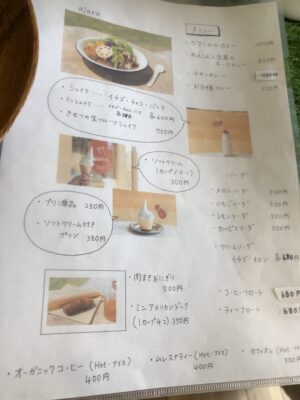 ajara
メニュー
カレー 1,000円
れんこんと生姜の
キーマカレー
チキンカレー
お子様カレー
・シェイク・・・イチゴ・チョコ・バニラ
各600円
・ミニシェイク・・・イチゴ・チョコ・バニラ
各380
・きせつの生フルーツシェイク
750円
・ソフトクリーム
(カップ/コーン)
300円
・プリン単品 250円
・ソフトクリーム付き
プリン 380円
ソーダ
・メロンソーダ
・いちごソーダ
・レモンソーダ
・カルピスソーダ
・クリームソーダ
イチゴ・メロン 各680
・コーヒーフロート 680
・ティーフロート 680
・肉まきおにぎり
500円
・ミニアメリカンドッグ
(1カップ4コ) 350円
・オーガニックコーヒー (Hot・アイス)
400円
・ムレスナティー (Hot・アイス)
400円
・カフェオレ (Hot・アイス)
500円